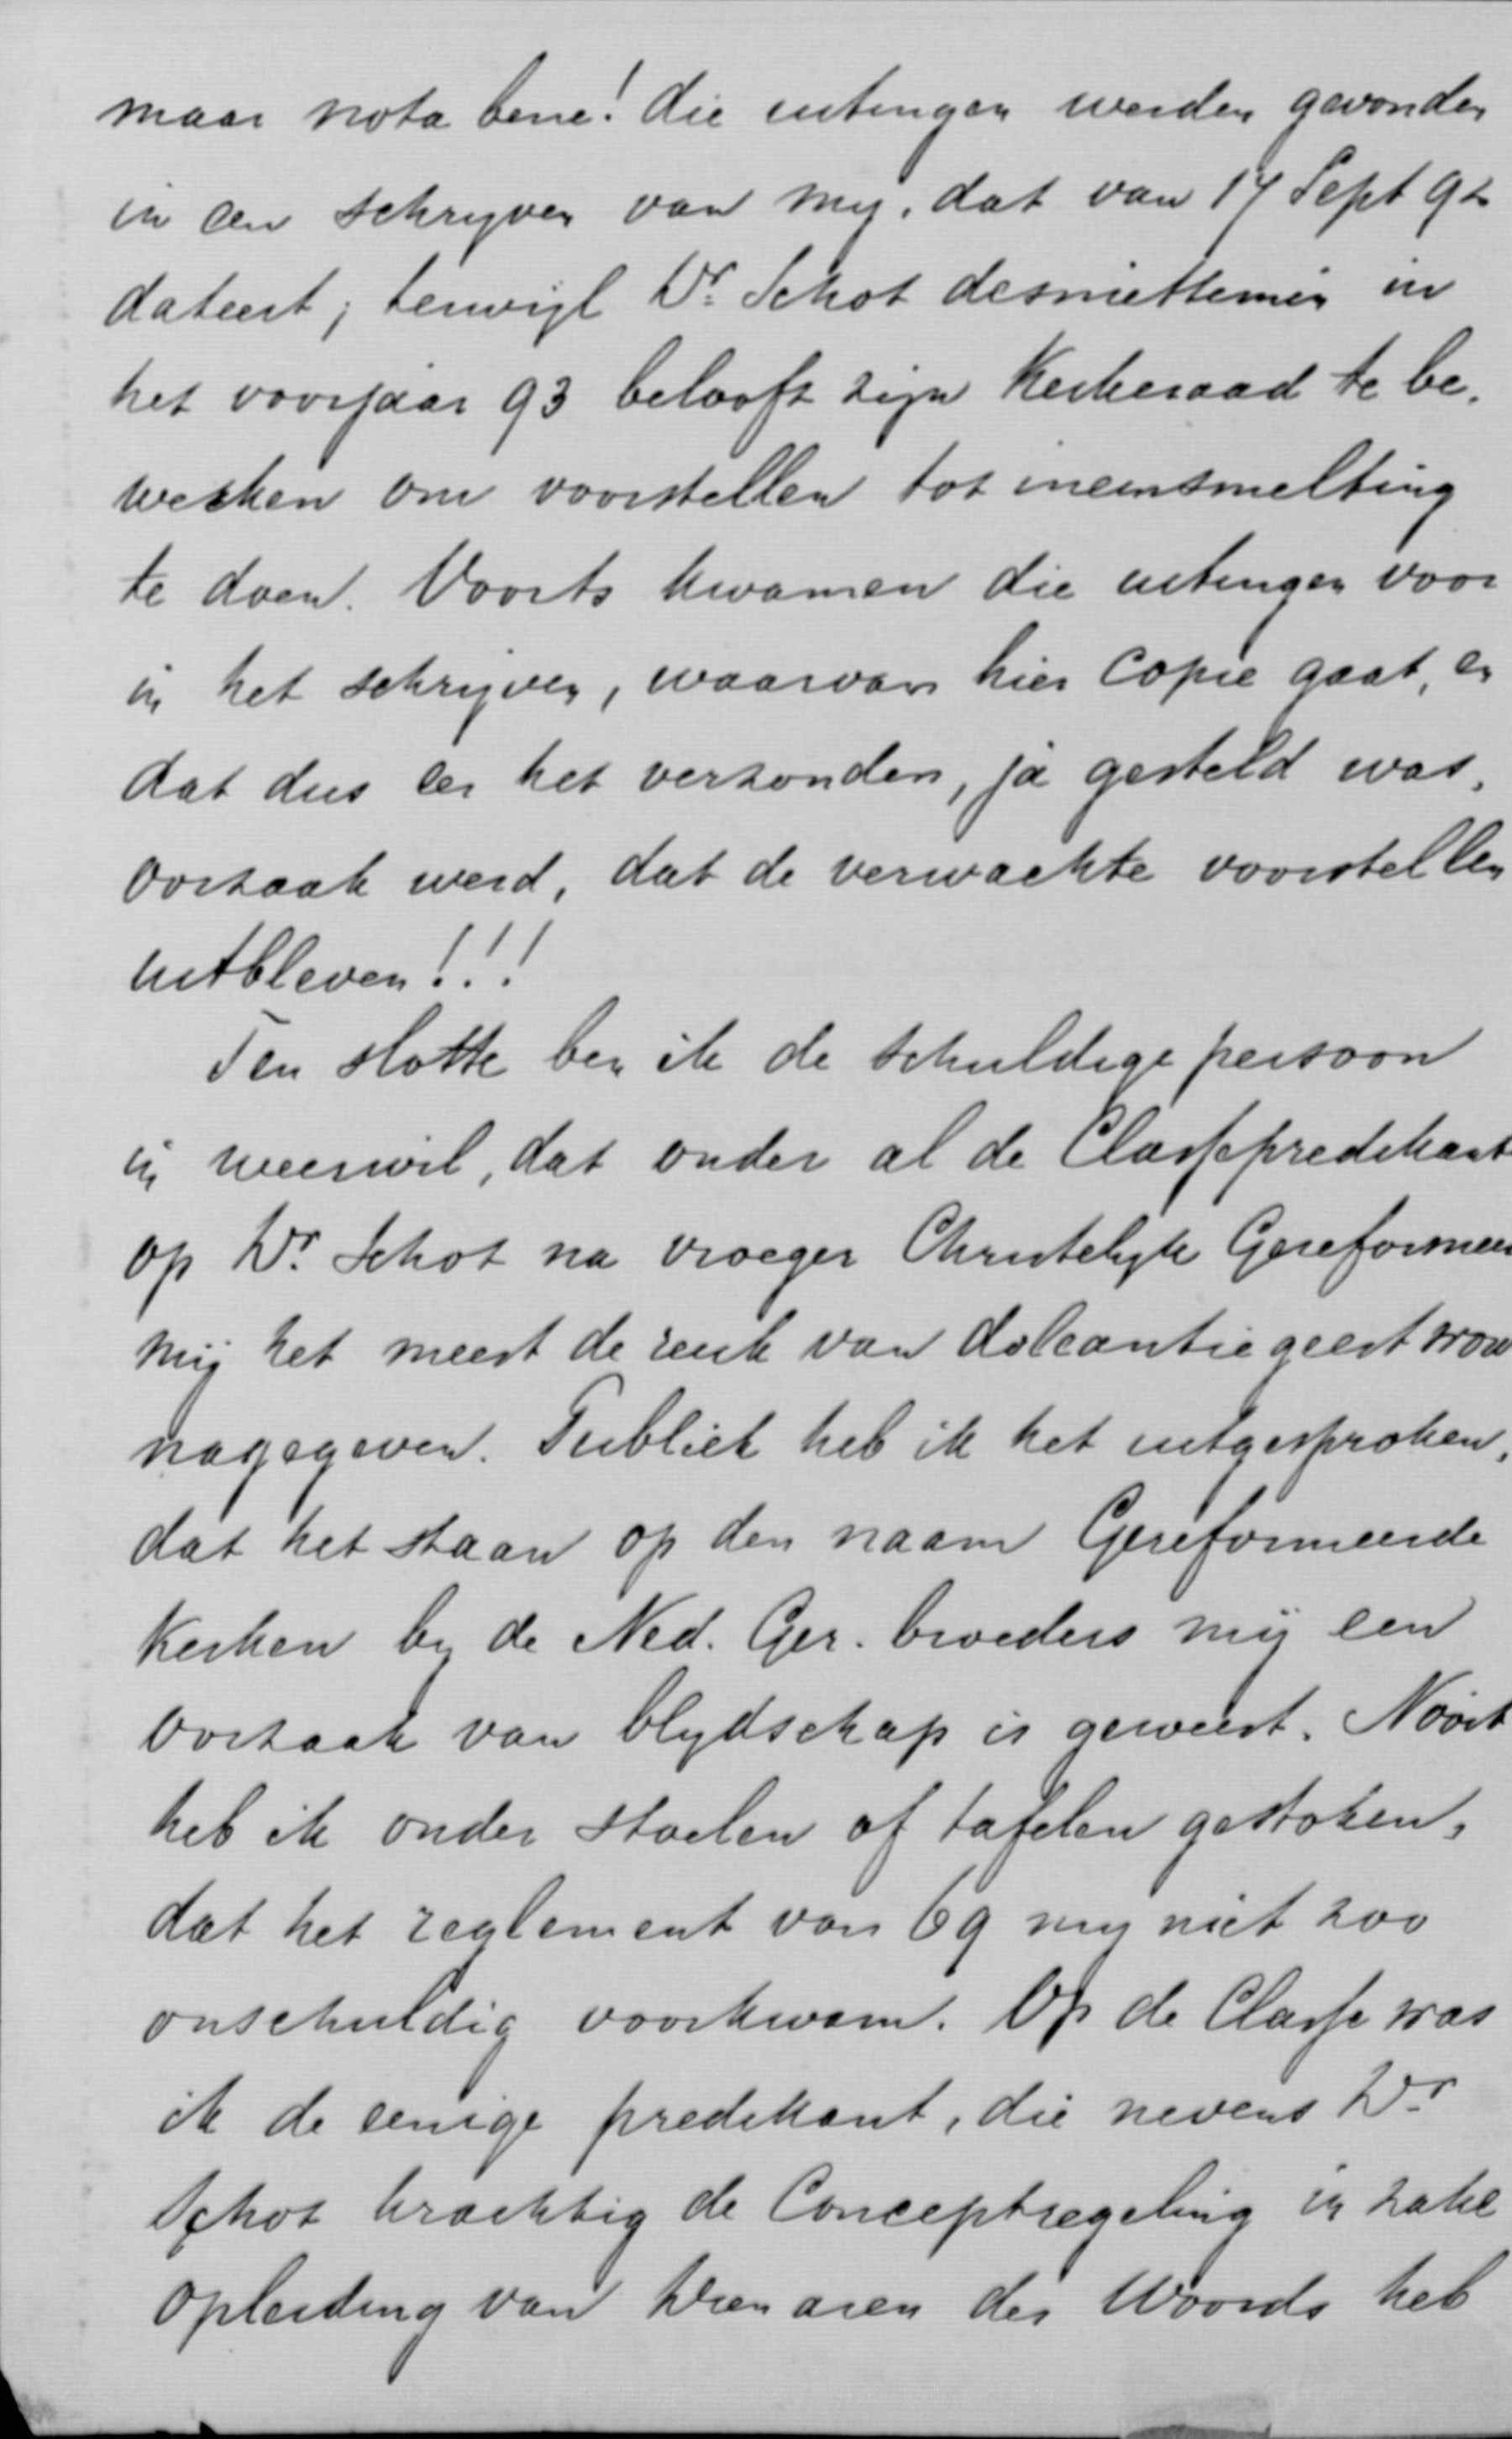 maar nota bene! die uitingen werden gevonden
in een schryven van my, dat van 17 Sept 92
dateert; terwijl Ds. Schot desniettemin in
het voorjaar 93 belooft zijn Kerkeraad te be-
werken om voorstellen tot ineensmelting
te doen. Voorts kwamen die uitingen voor
in het schrijven, waarvan hier Copie gaat, en
dat dus eer het verzonden, ja gesteld was,
oorzaak werd, dat de verwachte voorstellen
uitbleven!!!
Ten slotte ben ik de schuldige persoon
in weerwil, dat onder al de Classepredikant
op Ds. Schot na vroeger Christelyk Gereformeer
mij het meest de reuk van doleantiegeest wow
nagegeven. Publiek heb ik het uitgesproken,
dat het staan op den naam Gereformeerde
Kerken by de Ned. Ger. broeders mij een
oorzaak van blydschap is geweest. Nooit
heb ik onder stoelen of tafelen gestoken,
dat het reglement van 69 my niet zoo
onschuldig voorkwam. Op de Classe was
ik de eenige predikant, die nevens Ds.
Schot krachtig de Conceptregeling in zake
opleiding van Dienaren des Woords heb